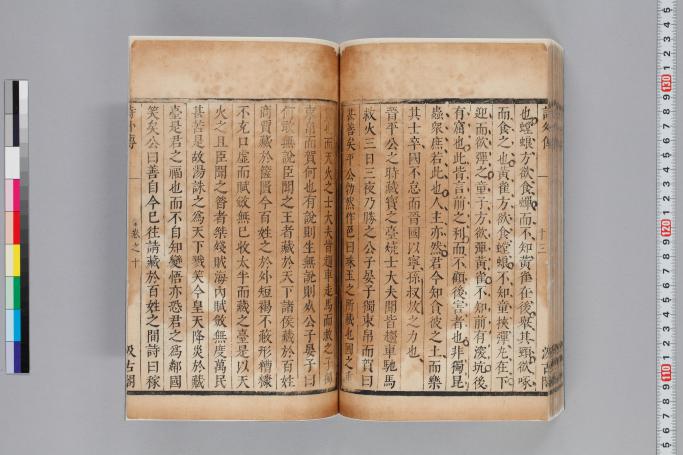 也螳螂方欲食蟬而不知黃雀在後舉其頸欲啄
而食之也黃雀方欲食螳螂不知童挾彈丸在下
迎而欲彈之童子方欲彈黃雀不知前有深坑後
有窟也此皆言前之利而不顧後害者也非獨昆
蟲衆庶若此也人主亦然君今知貪彼之土而樂
其士卒國不怠而晉國以寧孫叔敖之力也
晉平公之時藏寶之臺燒士大夫聞皆趨車馳馬
救火三日三夜乃勝之公子晏子獨束帛而賀曰
甚善矣平公勃然作色曰珠玉之所藏也國之
而天火之士大夫皆趨車走馬而救之子獨
束帛而賀何也有說則生無說則死公子晏子曰
何敢無說臣聞之王者藏於天下諸侯藏於百姓
商賈藏於篋匱今百姓之於外短褐不蔽形糟糠
不充口虛而賦斂無已收太半而藏之臺是以天
火之且臣聞之昔者桀殘賊海內賦斂無度萬民
甚苦是故湯誅之爲天下戮笑今皇天降災於藏
臺是君之福也而不自知變悟亦恐君之爲鄰國
笑矣公曰善自今已往請藏於百姓之間詩曰稼
詩外傳
卷之十
十三
汲古閣
汲古閣
1 2 3 4 5
130
120
110